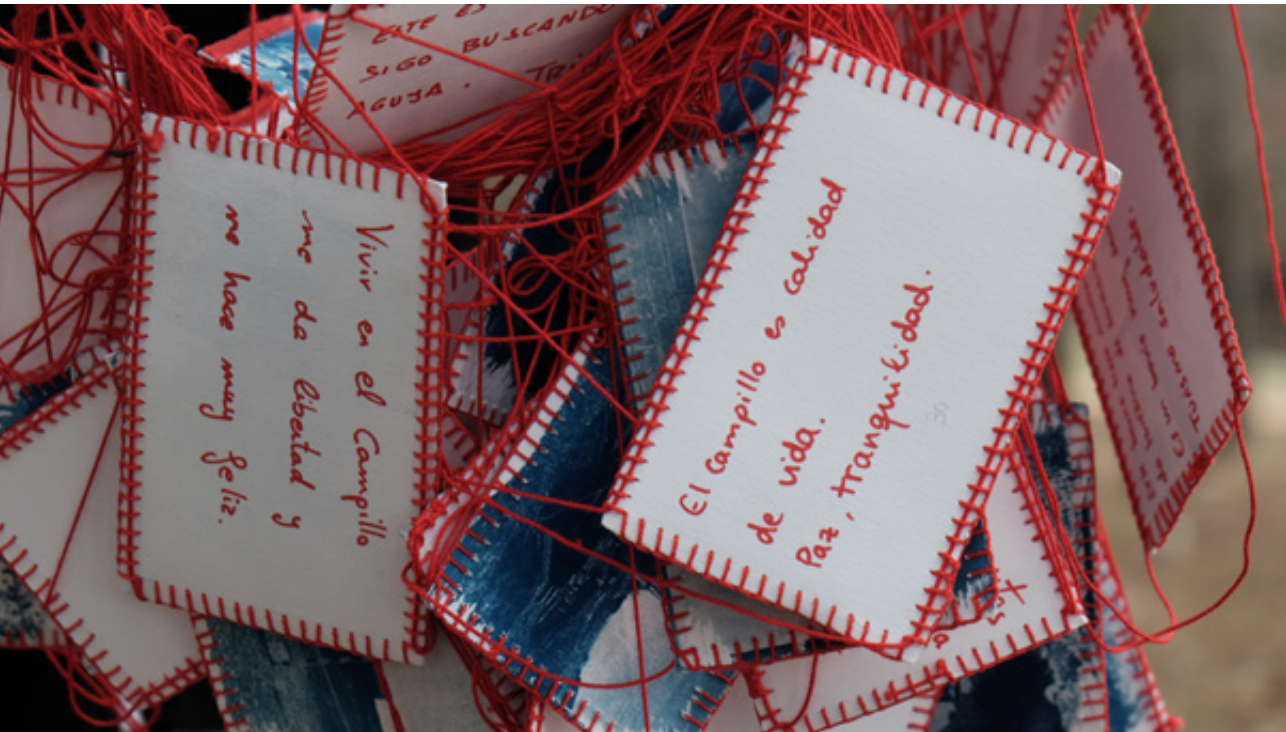 ESTE ES
SIGO BUSCANDO
AGUJA.
Vivir en el Campillo
me da libertad y
me hace muy feliz.
El Campillo es calidad
de vida.
Paz, tranquilidad.